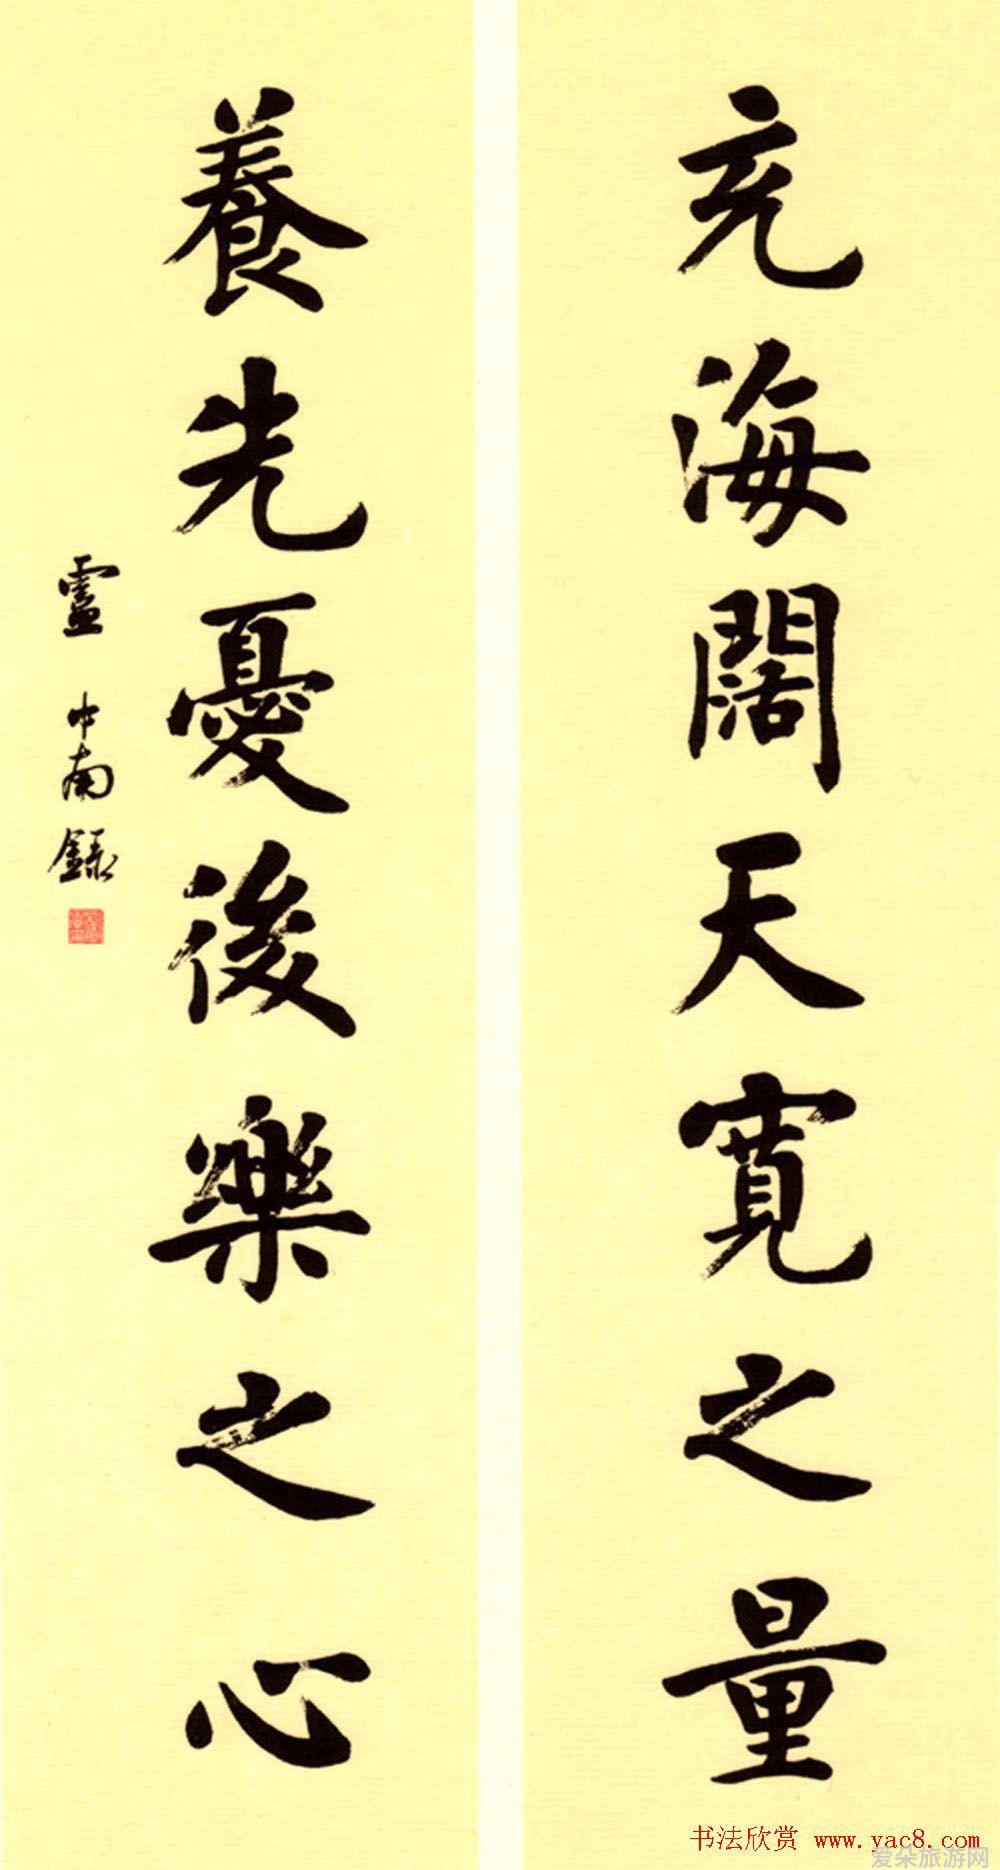 充海闊天寬之量
養先憂後樂之心
盧中南錄
书法欣赏 www.yac8.com
爱朵旅游网